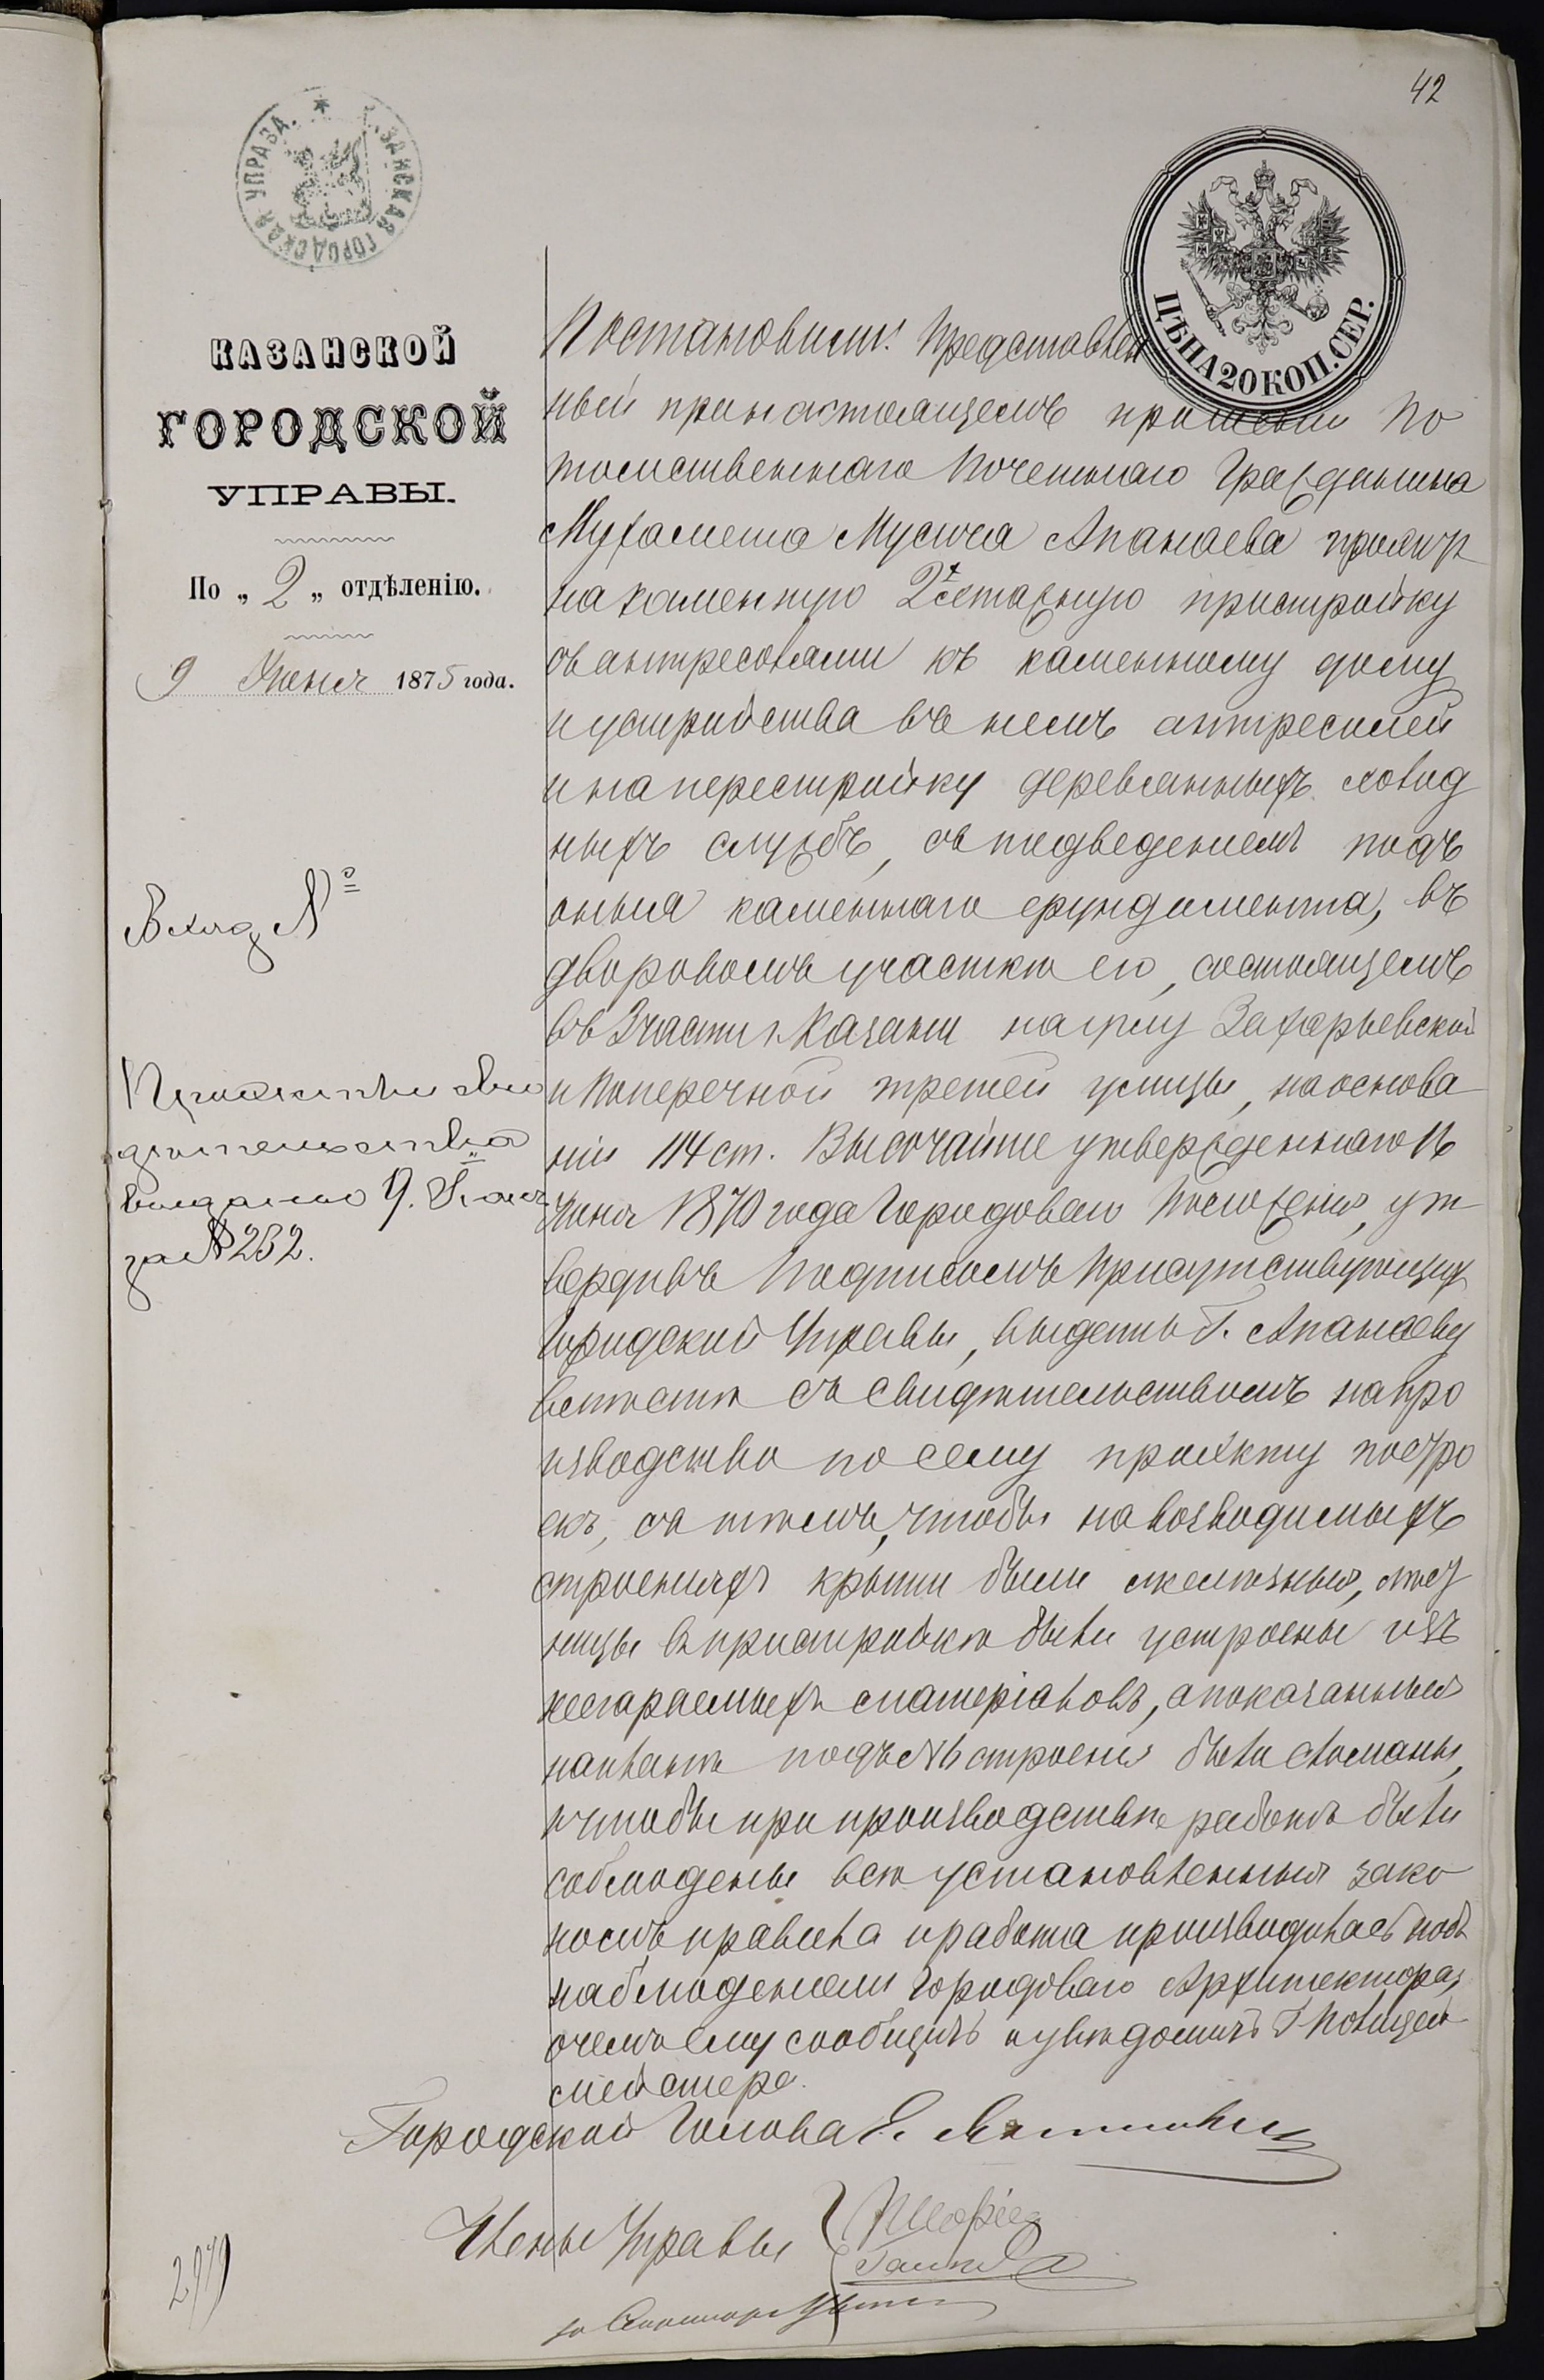 42
КАЗАНСКАЯ ГОРОДСКАЯ УПРАВА.
ЦѢНА 20 КОП. СЕР.
КАЗАНСКОЙ
ГОРОДСКОЙ
УПРАВЫ.
По „ 2 „ отдѣленію.
9 Июня 1875 года.
Вход №
свидѣтельства
выдано 9. Июня
за № 232.
Постановили: Представлен
ный при настоящемъ прошеніи По
томственнаго Почетнаго Гражданина
Мухамета Мусича Апанаева проэктъ
на каменную 2х этажную пристройку
съ антресолями къ каменному дому
и устройства въ немъ антресолей
и на перестройку деревянныхъ холод
ныхъ службъ, съ подведеніемъ подъ
оныя каменнаго фундамента, въ
дворовомъ участкѣ его, состоящемъ
въ 3 части г. Казани на углу Захарьевской
и Поперечной третей улицы, на основа
ніи 114 ст. Высочайше утвержденнаго 16
Июня 1870 года Городоваго Положенія, ут
вердивъ подписомъ Присутствующихъ
Городской Управы, выдать Г. Апанаеву
вмѣстѣ съ свидѣтельствомъ на про
изводство по сему проэкту постро
екъ, съ тѣмъ, чтобы на возводимыхъ
строеніяхъ крыши были желѣзныя, лѣст
ницы въ пристройкѣ были устроены изъ
несгараемыхъ матеріаловъ, а показанныя
на планѣ подъ № строенія были сломаны,
и чтобы при производствѣ работъ были
соблюдены всѣ установленныя зако
номъ правила и работа производилась подъ
наблюденіемъ Городоваго Архитектора,
о чемъ ему сообщить и увѣдомить Г. Полицей
мейстера.
Городской Голова Е.
Члены Управы
за Секретаря
2979